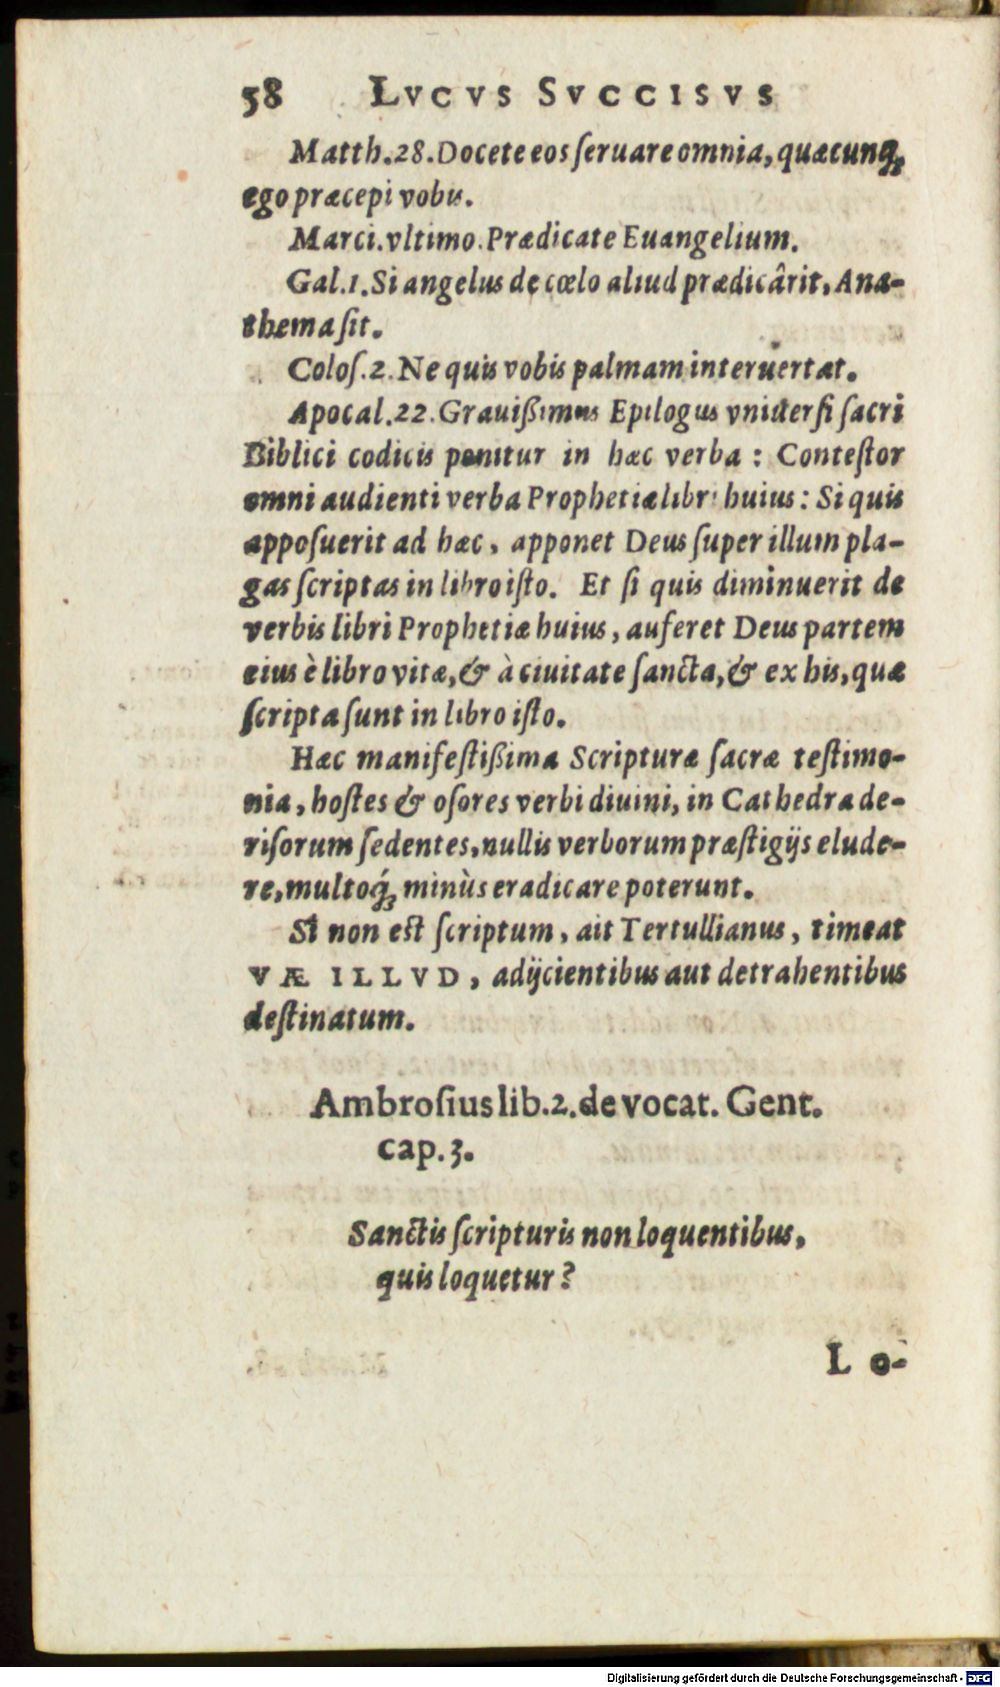 58 LVCVS SVCCISVS
Matth.28. Docete eos ſeruare omnia, quæcunq́;
ego præcepi vobis.
Marci. vltimo. Prædicate Euangelium.
Gal.1. Si angelus de cœlo aliud prædicârit, Ana-
thema ſit.
Coloſ.2. Ne quis vobis palmam interuertat.
Apocal.22. Grauißimus Epilogus vniuerſi ſacri
Biblici codicis ponitur in hæc verba: Conteſtor
omni audienti verba Prophetiæ libri huius: Si quis
appoſuerit ad hæc, apponet Deus ſuper illum pla-
gas ſcriptas in libro iſto. Et ſi quis diminuerit de
verbis libri Prophetiæ huius, auferet Deus partem
eius è libro vitæ, & à ciuitate ſancta, & ex his, quæ
ſcripta ſunt in libro iſto.
Hæc manifeſtißima Scripturæ ſacræ teſtimo-
nia, hoſtes & oſores verbi diuini, in Cathedra de-
riſorum ſedentes, nullis verborum præſtigijs elude-
re, multoq́; minùs eradicare poterunt.
Si non eſt ſcriptum, ait Tertullianus, timeat
VÆ ILLVD, adijcientibus aut detrahentibus
deſtinatum.
Ambroſius lib.2. de vocat. Gent.
cap.3.
Sanctis ſcripturis non loquentibus,
quis loquetur?
L o-
Digitalisierung gefördert durch die Deutsche Forschungsgemeinschaft - DFG